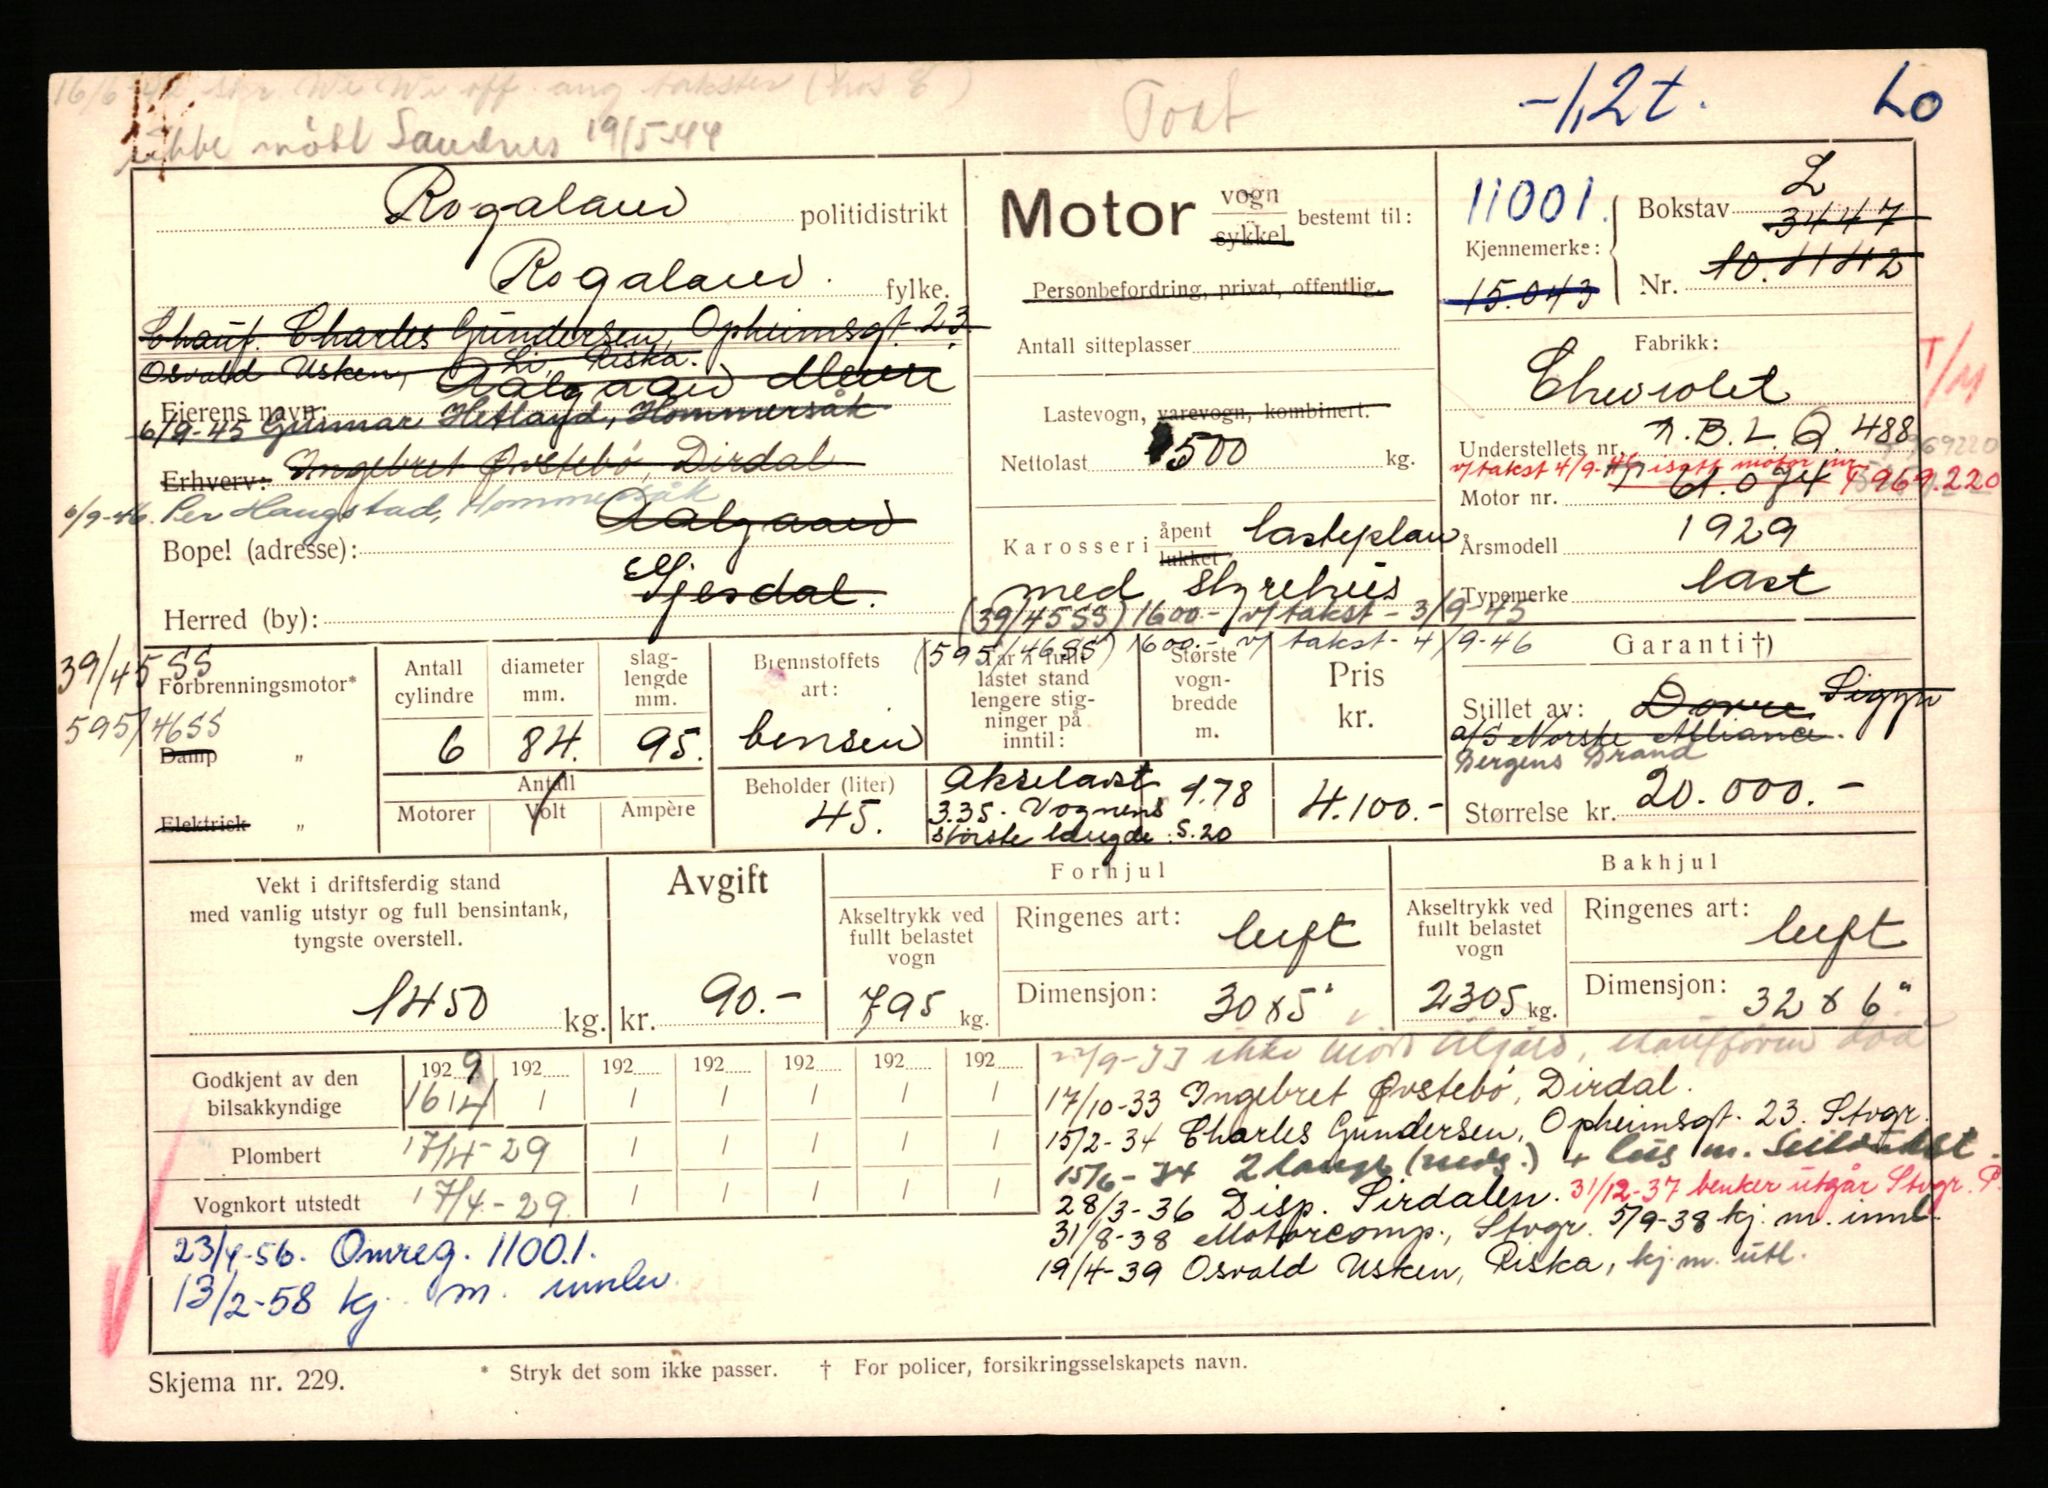 16/6-42 skr. Wi Wi off. ang takster (hos E)
ikke møtt Sandnes 19/5-44
-1,2t.
LO
Rogaland politidistrikt
Rogaland fylke.
Chauf. Charles Gundersen, Opheimsgt. 23.
Osvald Usken, Li, Riska.
Aalgaard
Eierens navn:
6/9-45 Gusmar Hetland, Hommersåk
Erhverv: Ingebret Øvstebö, Dirdal
6/9-46. Per Haugstad, Hommersåk
Aalgaard
Bopel (adresse):
Gjesdal.
Herred (by):
Motor vogn sykkel bestemt til:
Personbefordring, privat, offentlig.
Antall sitteplasser
Lastevogn, varevogn, kombinert.
Nettolast 1500 kg.
Karosseri åpent lukket lasteplan
med styrehus
(39/45SS) 1600.- v/takst - 3/9-45
(595/46SS) 1600.- v/takst - 4/9-46
11001.
Kjennemerke:
15.043
Bokstav L
3447
Nr. 10.442
Fabrikk:
Chevrolet
T/M
Understellets nr. N.B.L.Q. 488
v/takst 4/9-46 isatt motor nr.
Motor nr. 61.074 T969.220
Årsmodell 1929
Typemerke last
39/45SS
595/46SS
Forbrenningsmotor*
Damp "
Elektrisk "
Antall cylindre
6
diameter mm.
84.
slaglengde mm.
95.
Antall
Motorer Volt Ampère
Brennstoffets art:
bensin
Beholder (liter)
45.
Tar i fullt lastet stand lengere stigninger på inntil:
Akselavst
3.35. Vognens
største lengde 5.20
Største vognbredde m.
1.78
Pris kr.
4.100.-
Garanti †)
Stillet av: Dovre Sigyn
a/s Norske Alliance.
Bergens Brand
Størrelse kr. 20.000.-
Vekt i driftsferdig stand
med vanlig utstyr og full bensintank,
tyngste overstell.
1450 kg.
Avgift
kr. 90.-
Forhjul
Akseltrykk ved fullt belastet vogn
795 kg.
Ringenes art: luft
Dimensjon: 30x5"
Bakhjul
Akseltrykk ved fullt belastet vogn
2305 kg.
Ringenes art: luft
Dimensjon: 32 x 6"
1929 192 192 192 192 192 192
Godkjent av den bilsakkyndige 16/4 / / / / / /
Plombert 17/4-29 / / / / /
Vognkort utstedt 17/4-29. / / / / /
22/9-33 ikke
17/10-33 Ingebret Øvstebö, Dirdal.
15/2-34 Charles Gundersen, Opheimsgt. 23. Stvgr.
15/6-34 2 lange
28/3-36 Disp. Sirdalen. 31/12-37 benker utgår Stvgr. P.
31/8-38 Motorcomp., Stvgr. 5/9-38 kj. m. innl.
19/4-39 Osvald Usken, Riska, kj. m. utl.
23/4-56. Omreg. 11001.
13/2-58 kj. m. innlev.
Skjema nr. 229.
* Stryk det som ikke passer. † For policer, forsikringsselskapets navn.